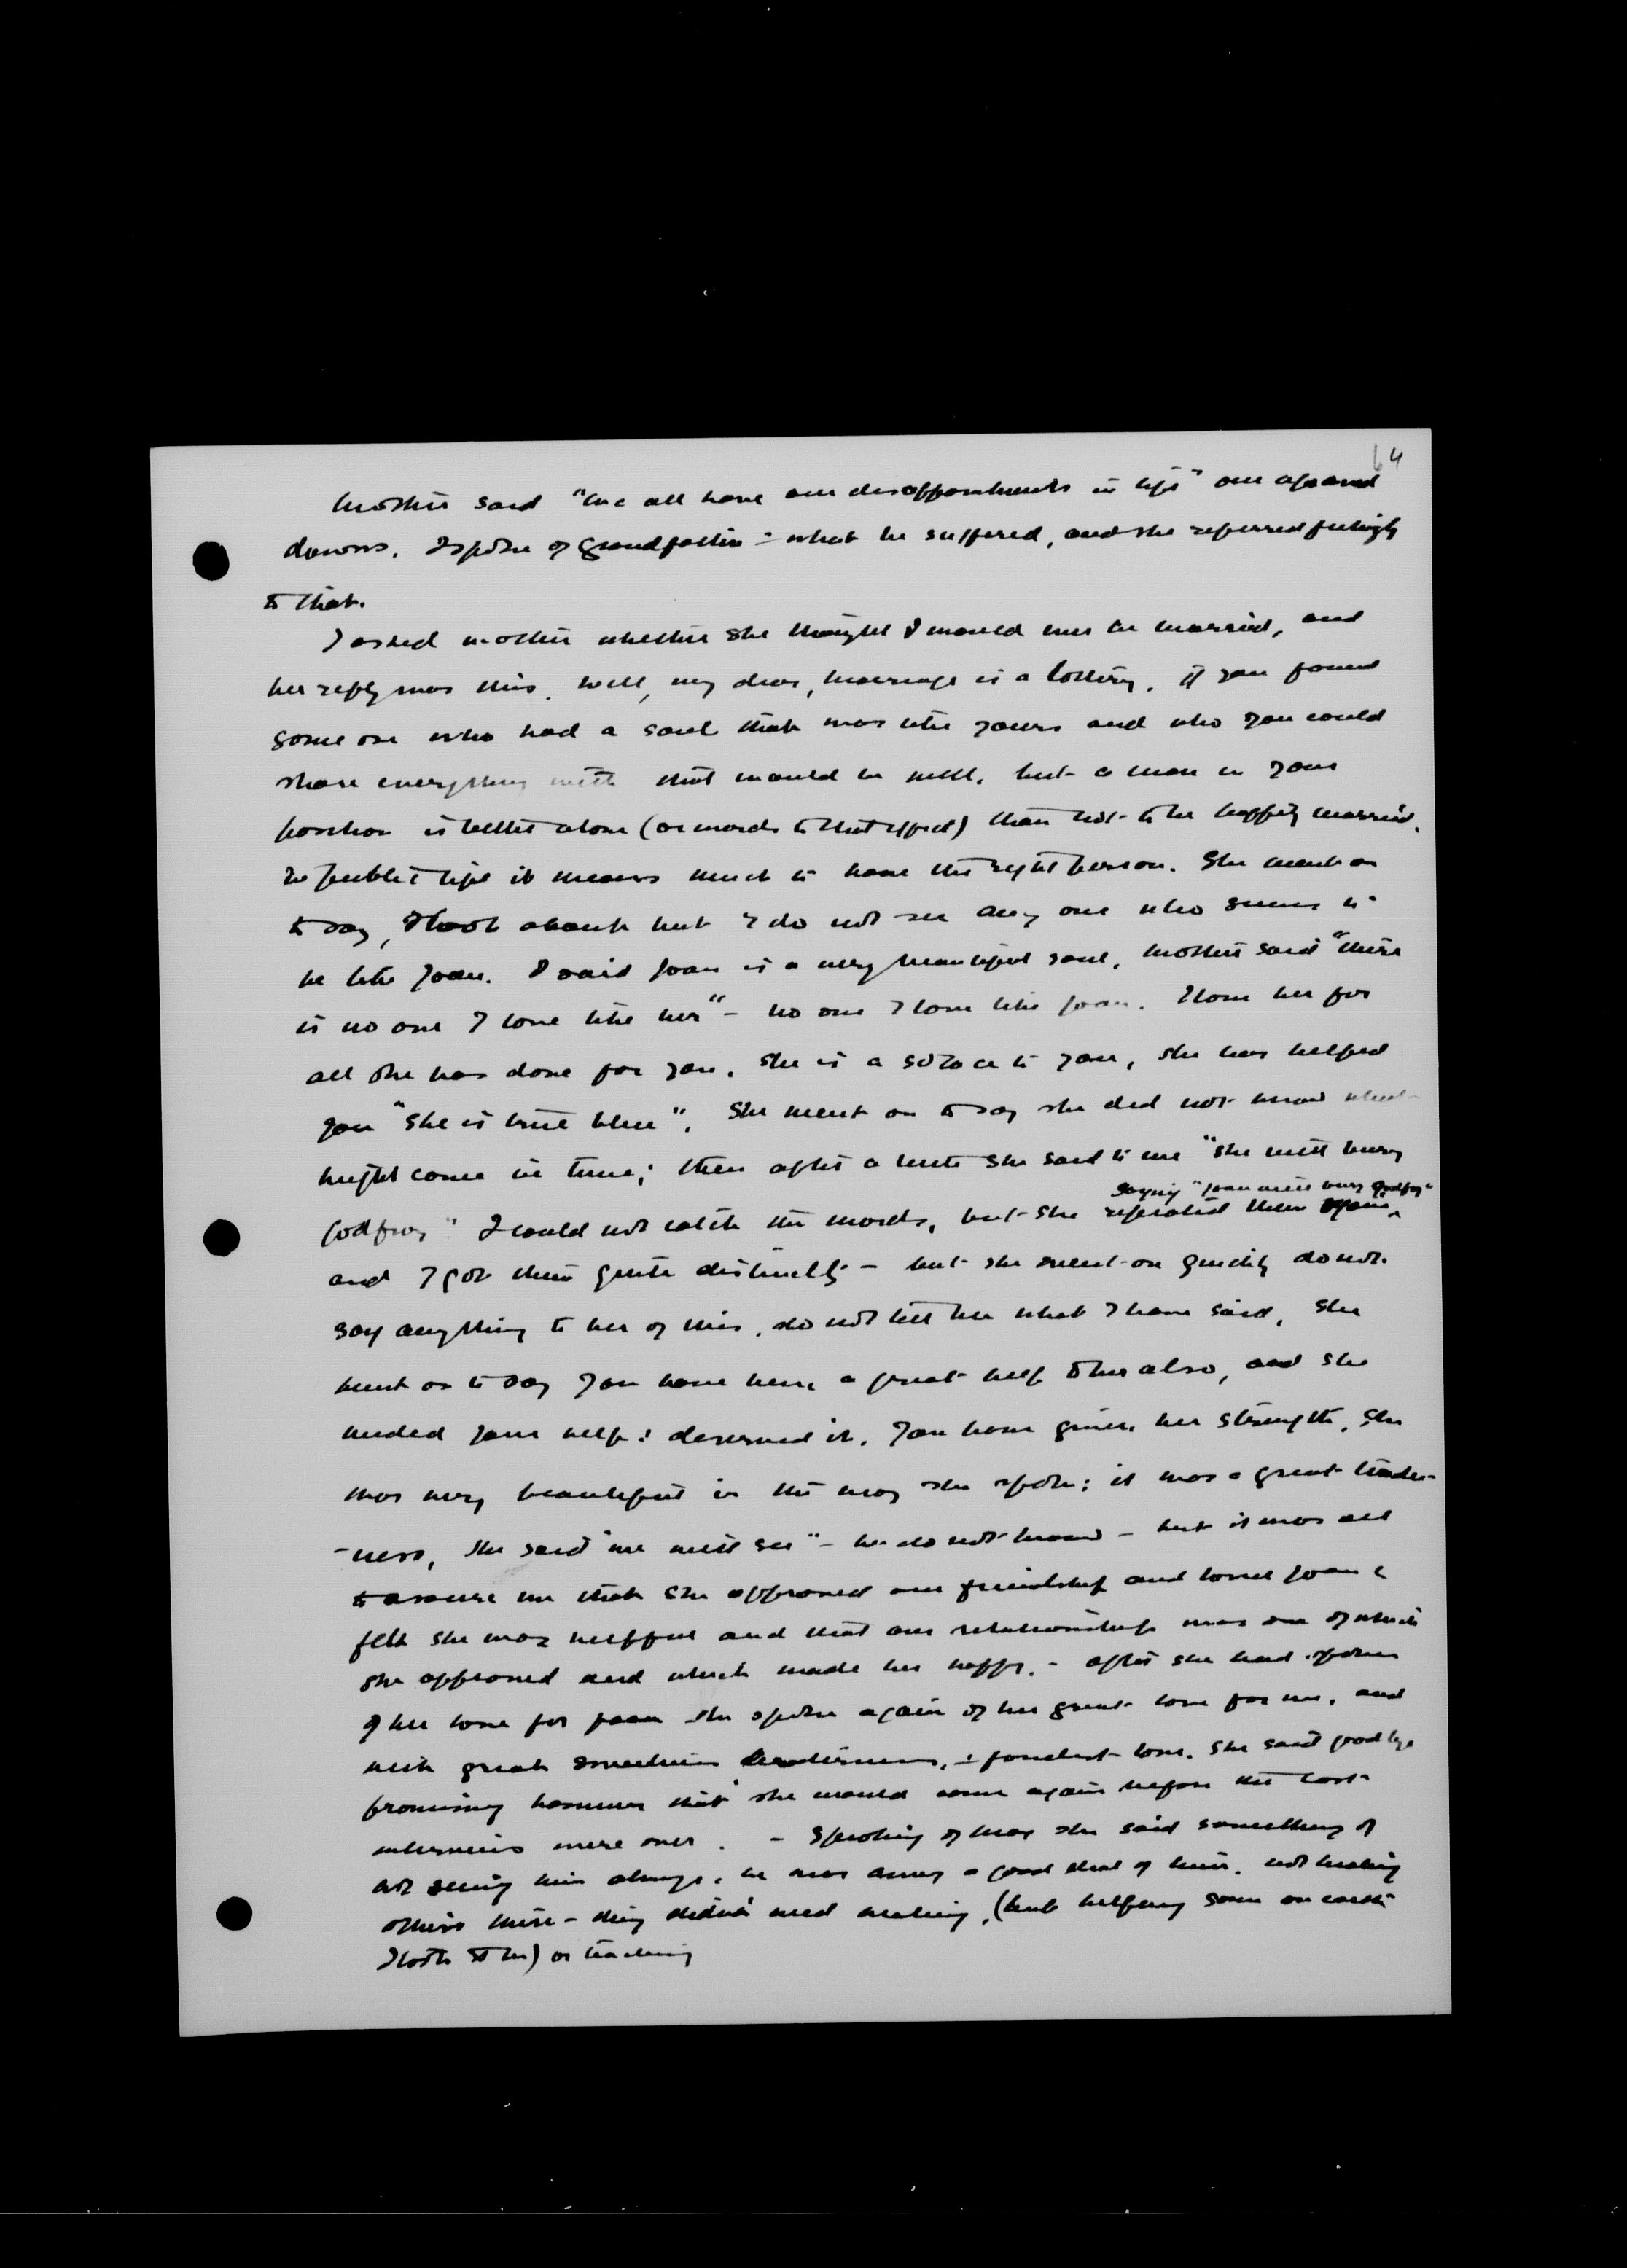 64
Mother said "we all have our disappointments in life" our ups and
downs. I spoke of Grandfather & what he suffered, and she referred feelingly
to that.
I asked mother whether she thought I would ever be married, and
her reply was this. Well, my dear, marriage is a lottery. If you found
some one who had a soul that was like yours and who you could
share everything with that would be well, but a man in your
position is better alone (or words to that effect) than not to be happily married.
In public life it means much to have the right person. She went on
to say, I look about but I do not see any one who seems to
be like Joan. I said Joan is a very beautiful soul, mother said "there
is no one I love like her" - no one I love like Joan. I love her for
all she has done for you. She is a solace to you, she has helped
you "she is true blue". She went on to say she did not know what
might come in time; then after a while she said to me "she will bury
Godfroy" I could not catch the words, but she repeated them again, saying "Joan will bury Godfroy"
and I got them quite distinctly - but she went on quickly do not
say anything to her of this, do not tell her what I have said, she
went on to say you have been a great help to her also, and she
needed your help & deserved it. You have given her strength, she
was very beautiful in the way she spoke; it was a great tender-
-ness, she said "we will see" - we do not know - but it was all
to assure me that she approved our friendship and loved Joan &
felt she was helpful and that our relationship was one of which
she approved and which made her happy. - After she had spoken
of her love for Joan she spoke again of her great love for me, and
with great tenderness, & fondest love. She said good bye
promising however that she would come again before the last
interviews were over. - Speaking of Max she said something of
not seeing him always, he was away a good deal of time, not healing
others there - they didn't need healing, (but helping some on earth
I took it to be) or teaching